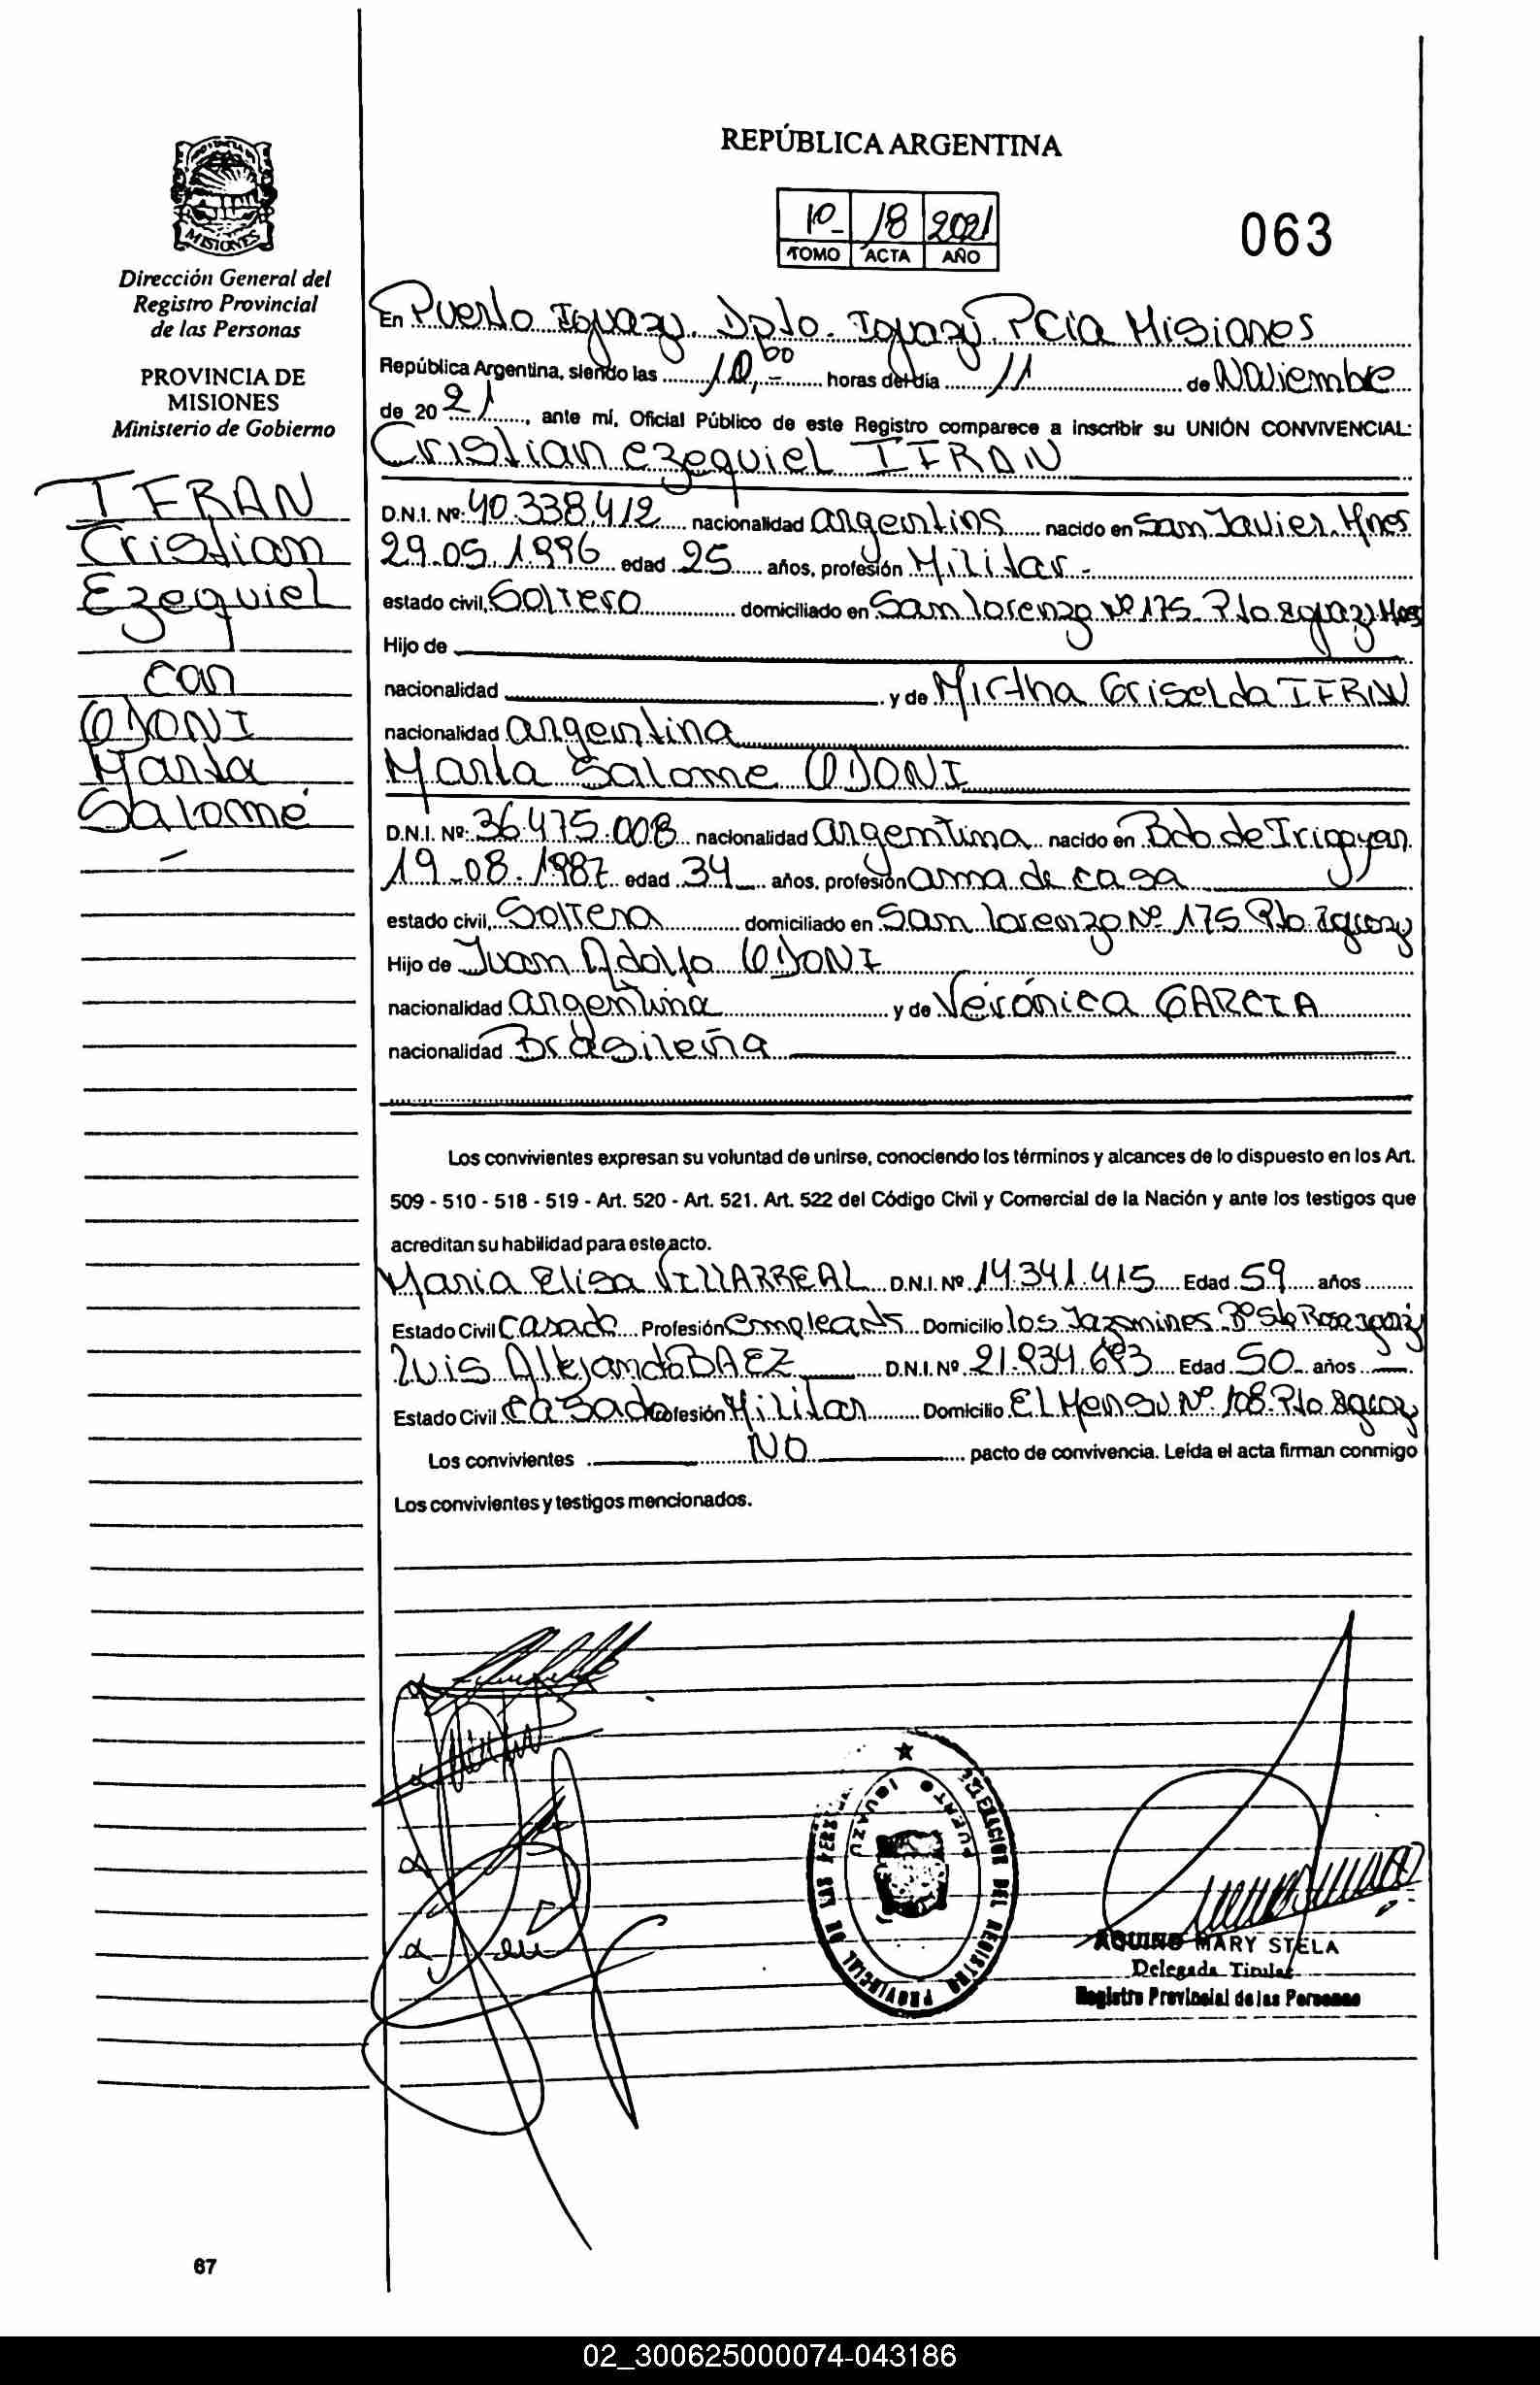 REPÚBLICA ARGENTINA
10 18 2021
TOMO ACTA AÑO
063
MISIONES
Dirección General del
Registro Provincial
de las Personas
PROVINCIA DE
MISIONES
Ministerio de Gobierno
IFRAN
Cristian
Ezequiel
con
Marta
Salomé
En Puerto Iguazu. Dpto. Iguazú Pcia Misiones
República Argentina, siendo las 10,00 horas del día 11 de Noviembre
de 2021, ante mí, Oficial Público de este Registro comparece a inscribir su UNIÓN CONVIVENCIAL:
Cristian ezequiel IFRAN
D.N.I. Nº 40.338.412 nacionalidad argentino nacido en San Javier Mnes
29.05.1996 edad 25 años, profesión Militar.-
estado civil, Soltero domiciliado en San lorenzo Nº 175 Pto Iguazu Mnes
Hijo de
nacionalidad y de Mirtha Griselda IFRAN
nacionalidad argentina
Marta Salome
D.N.I. Nº: 36.475.008 nacionalidad argentina nacido en Bdo de Irigoyen
19.08.1987 edad 34 años, profesión ama de casa
estado civil, Soltera domiciliado en San lorenzo Nº 175 Pto Iguazu
Hijo de Juan Adolfo
nacionalidad argentina y de Verónica GARCIA
nacionalidad Brasileña
Los convivientes expresan su voluntad de unirse, conociendo los términos y alcances de lo dispuesto en los Art.
509 - 510 - 518 - 519 - Art. 520 - Art. 521. Art. 522 del Código Civil y Comercial de la Nación y ante los testigos que
acreditan su habilidad para este acto.
Maria Elisa VILLARREAL D.N.I. Nº 14.341.415 Edad 59 años
Estado Civil Casada Profesión empleada Domicilio los Jazmines Bº Sta Rosa
Luis Alejandro BAEZ D.N.I. Nº 21.934.693 Edad 50 años
Estado Civil Casado Profesión Militar Domicilio El Mensu Nº 108 Pto Iguazu
Los convivientes NO pacto de convivencia. Leída el acta firman conmigo
Los convivientes y testigos mencionados.
PUERTO IGUAZU
DEL REGISTRO PROVINCIAL DE LAS PERSONAS
AQUINO MARY STELA
Delegada Titular
Registro Provincial de las Personas
67
02_300625000074-043186